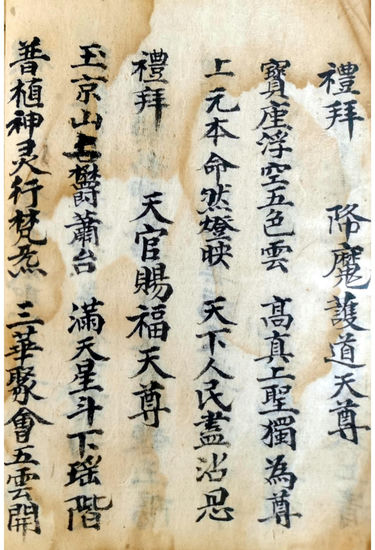 禮拜 降魔護道天尊
寶座浮空五色雲 高真上聖獨為尊
上元本命然燈映 天下人民盡沾恩
禮拜 天官賜福天尊
玉京山上欝蕭台 滿天星斗下瑶階
普植神灵行梵炁 三華聚會五雲開